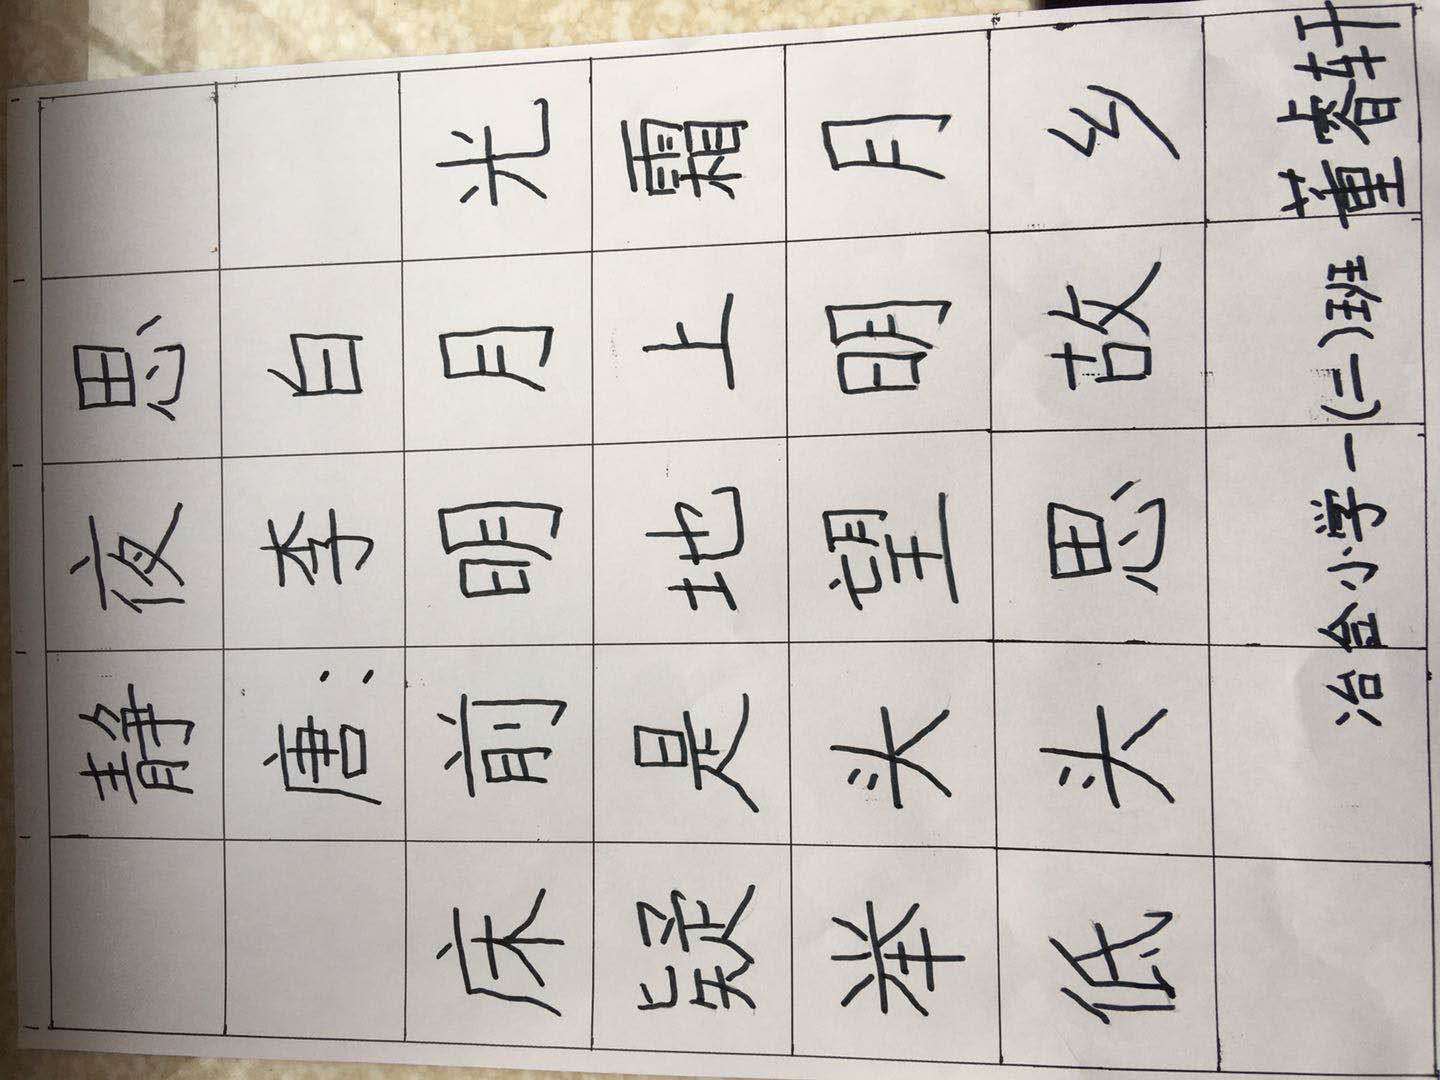 静夜思
唐:李白
床前明月光
疑是地上霜
举头望明月
低头思故乡
冶金小学一(二)班 董睿轩